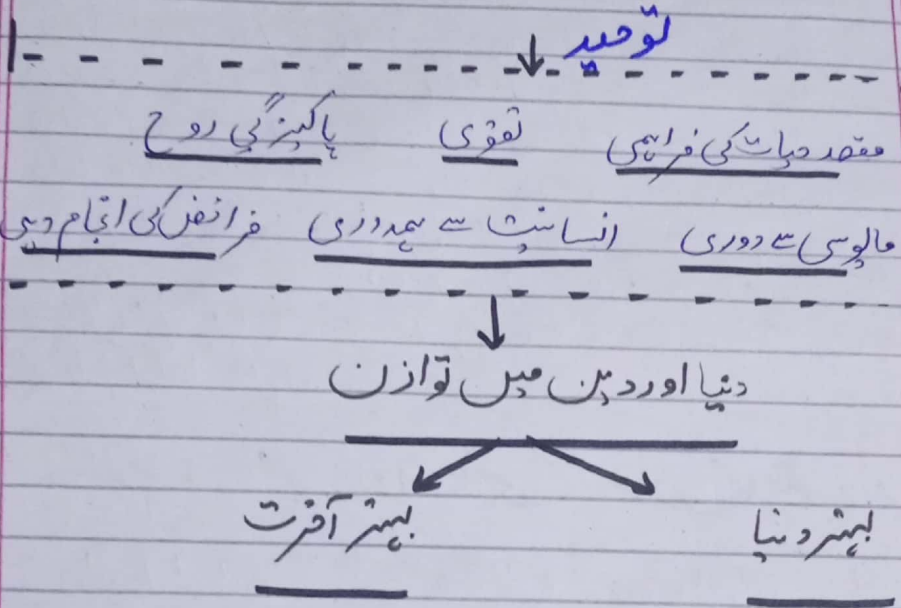 توحید
مقصد حیات کی فراہمی تقوی پاکیزگی روح
مایوسی سے دوری انسانیت سے ہمدردی فرائض کی انجام دہی
دنیا اور دین میں توازن
بہتر دنیا بہتر آخرت